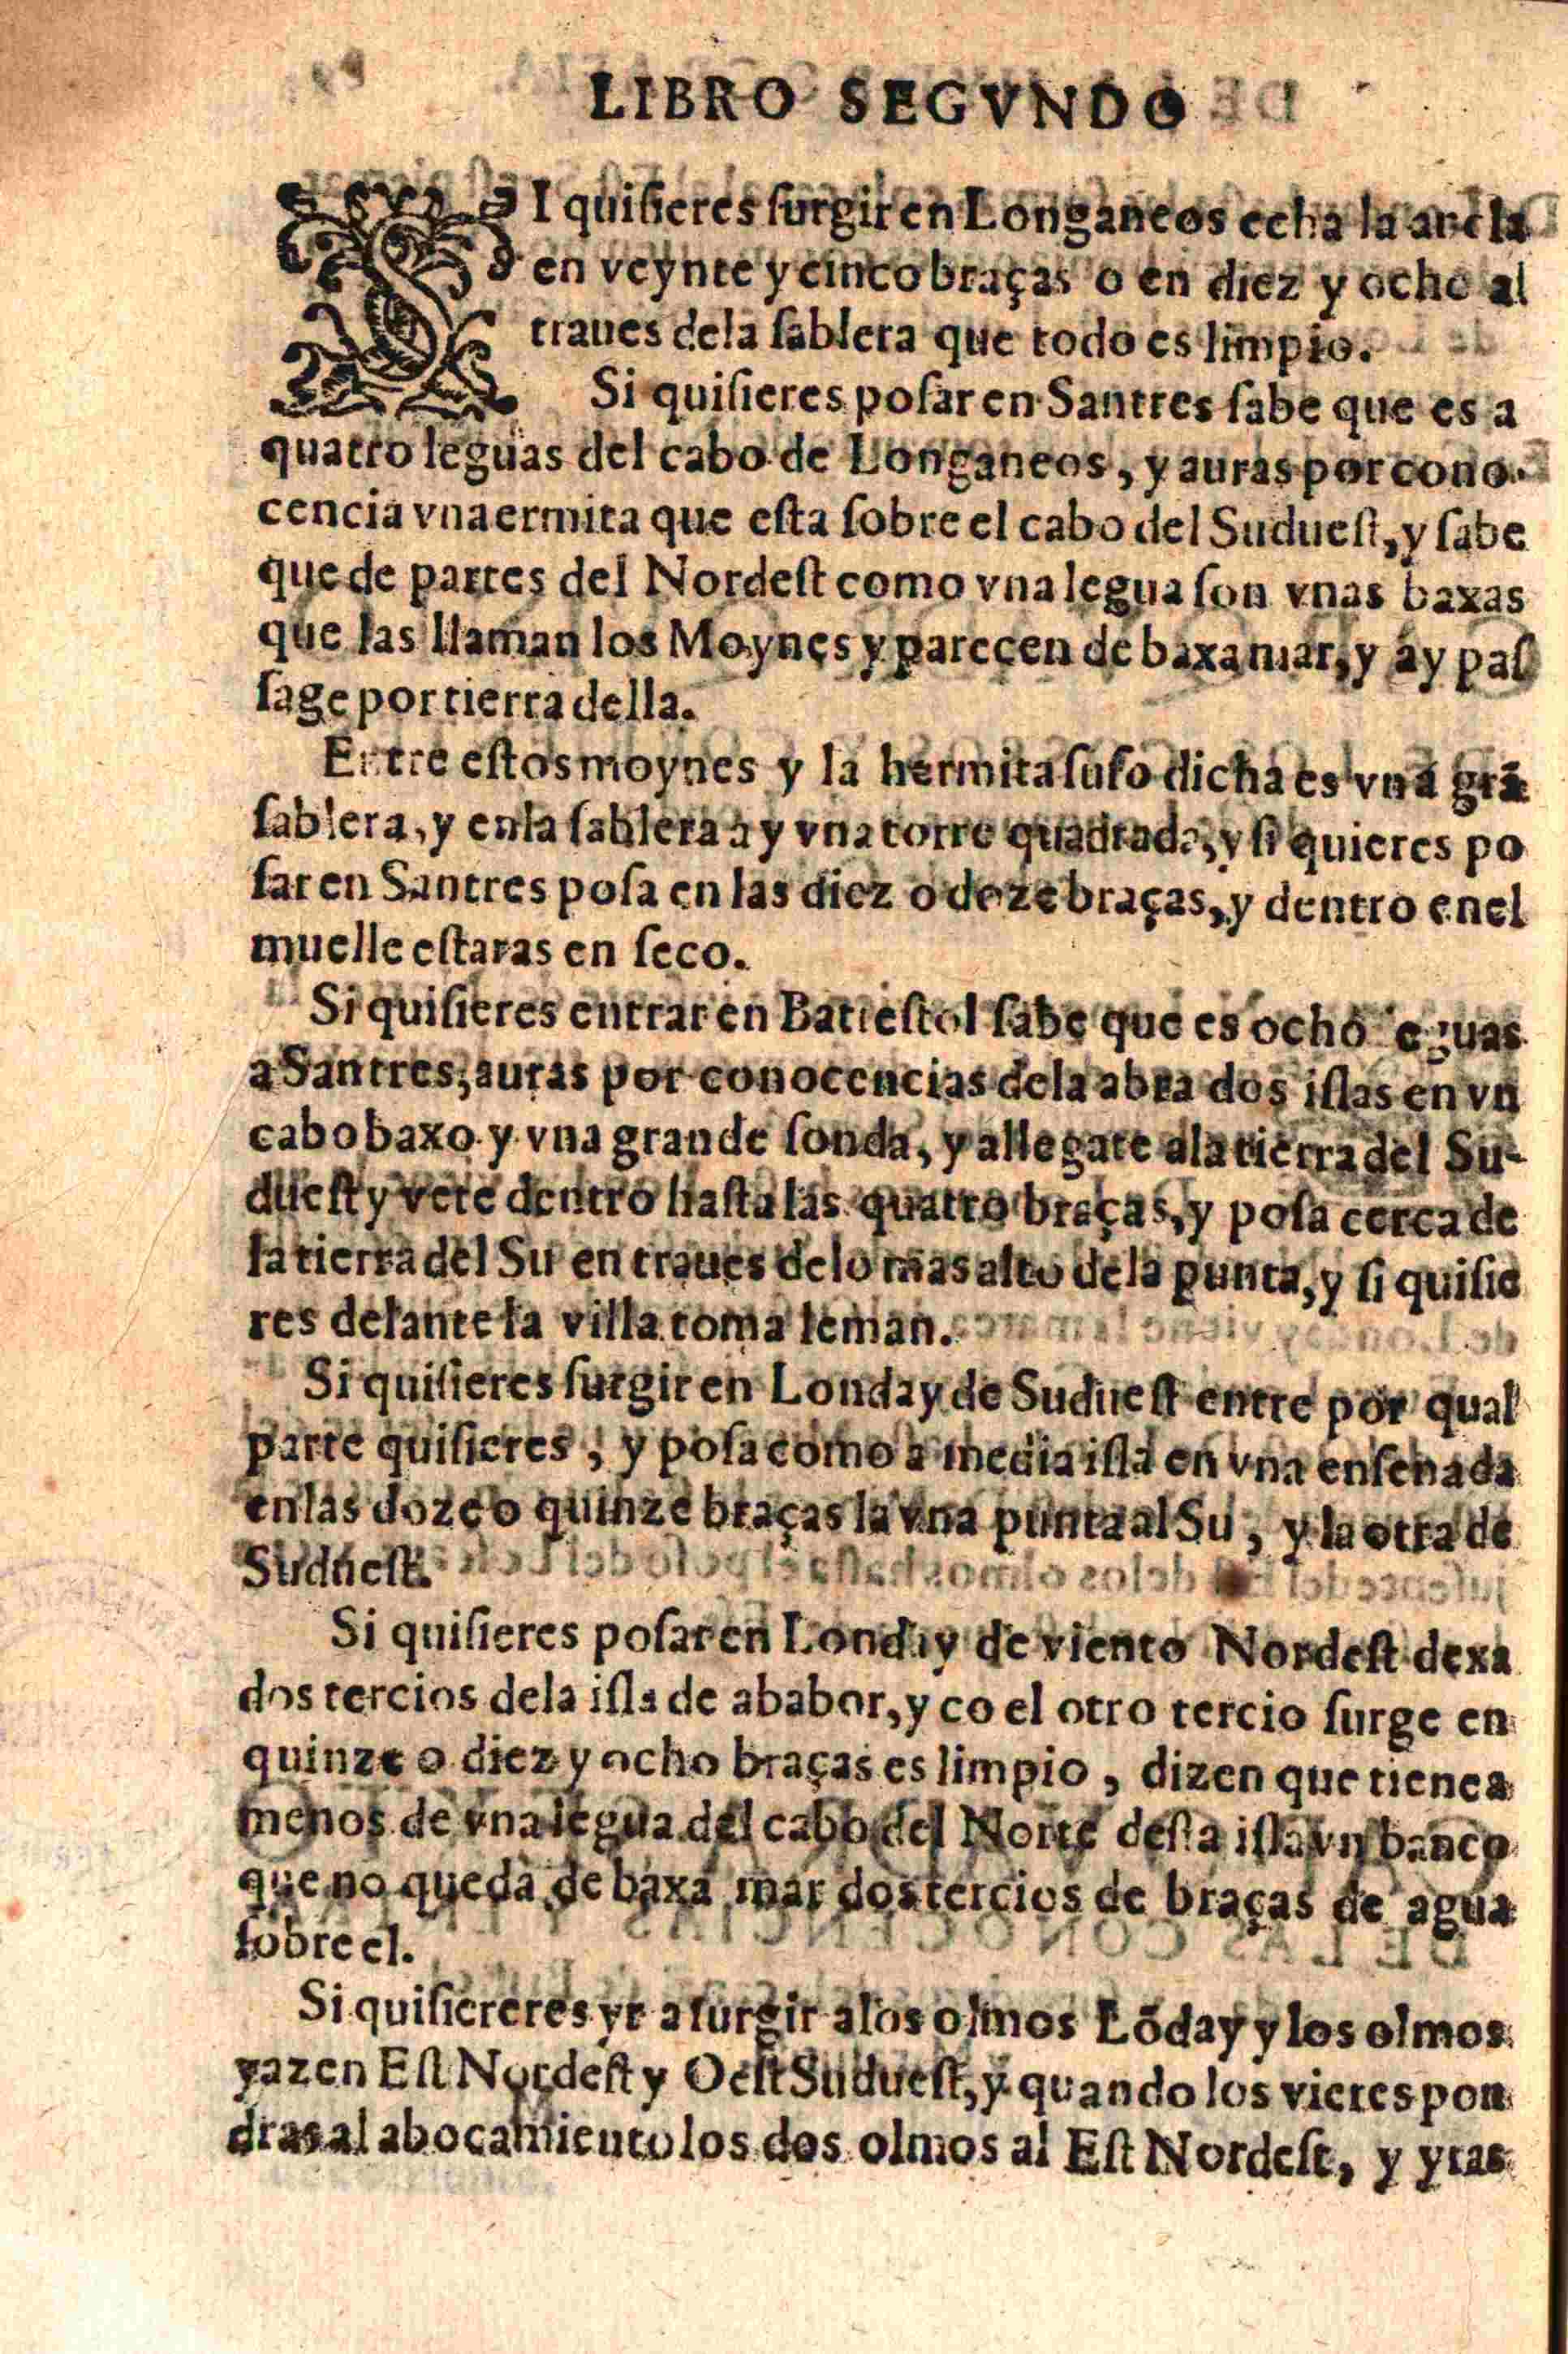 LIBRO SEGVNDO
SI quiſieres ſurgir en Longaneos echa la ancla
en veynte y cinco braças o en diez y ocho al
traues dela ſablera que todo es limpio.
Si quiſieres poſar en Santres ſabe que es a
quatro leguas del cabo de Longaneos, y auras por cono-
cencia vna ermita que eſta ſobre el cabo del Sudueſt, y ſabe
que de partes del Nordeſt como vna legua ſon vnas baxas
que las llaman los Moynes y parecen de baxa mar, y ay paſ
ſage por tierra della.
Entre eſtos moynes y la hermita ſuſo dicha es vna grã
ſablera, y enla ſablera ay vna torre quadrada, y ſi quieres po
ſar en Santres poſa en las diez o doze braças, y dentro enel
muelle eſtaras en ſeco.
Si quiſieres entrar en Batieſtol ſabe que es ocho leguas
a Santres, auras por conocencias dela abra dos iſlas en vn
cabo baxo y vna grande ſonda, y allegate ala tierra del Su-
dueſt y vete dentro haſta las quatro braças, y poſa cerca de
la tierra del Su en traues delo mas alto dela punta, y ſi quiſie
res delante la villa toma leman.
Si quiſieres ſurgir en Londay de Sudueſt entre por qual
parte quiſieres, y poſa como a media iſla en vna enſenada
enlas doze o quinze braças la vna punta al Su, y la otra de
Sudueſt.
Si quiſieres poſar en Londay de viento Nordeſt dexa
dos tercios dela iſla de ababor, y co el otro tercio ſurge en
quinze o diez y ocho braças es limpio, dizen que tiene a
menos de vna legua del cabo del Norte deſta iſla vn banco
que no queda de baxa mar dos tercios de braças de agua
ſobre el.
Si quiſiereres yr a ſurgir alos olmos Lõday y los olmos
yazen Eſt Nordeſt y Oeſt Sudueſt, y quando los vieres pon
dras al abocamiento los dos olmos al Eſt Nordeſt, y yras